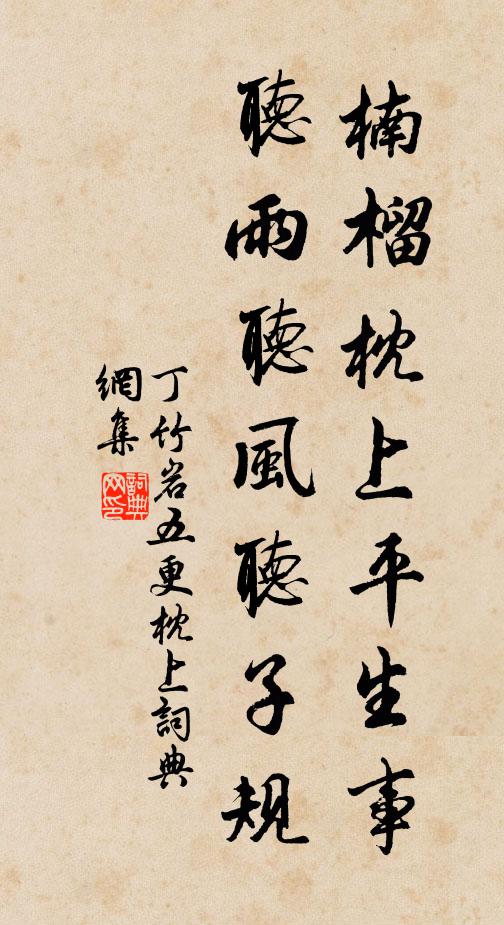 楠榴枕上平生事
聽雨聽風聽子規
丁竹岩五更枕上詞典
網集
詞典
网印